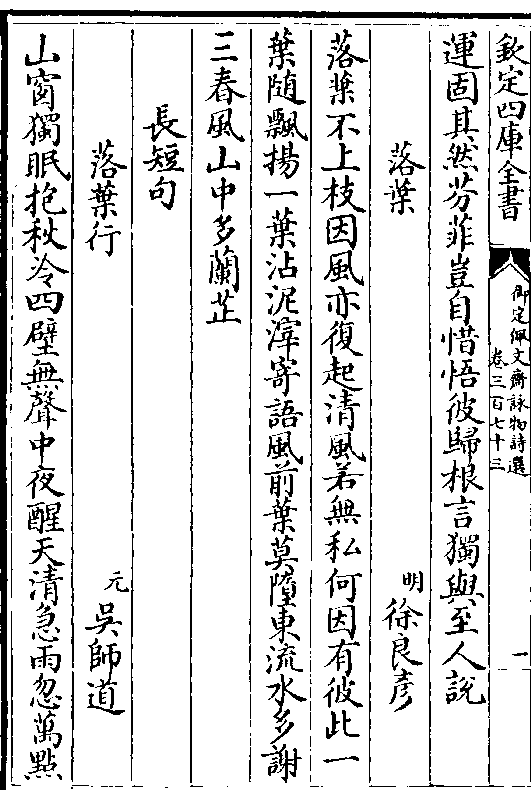 欽定四庫全書
御定佩文齋詠物詩選
卷三百七十三
一
運固其然芬菲豈自惜悟彼歸根言獨與至人說
落葉
明徐良彥
落葉不上枝因風亦復起清風若無私何因有彼此一
葉随飄揚一葉沾泥滓寄語風前葉莫墮東流水多謝
三春風山中多蘭芷
長短句
落葉行
元吳師道
山窗獨眠抱秋冷四壁無聲中夜醒天清急雨忽萬點